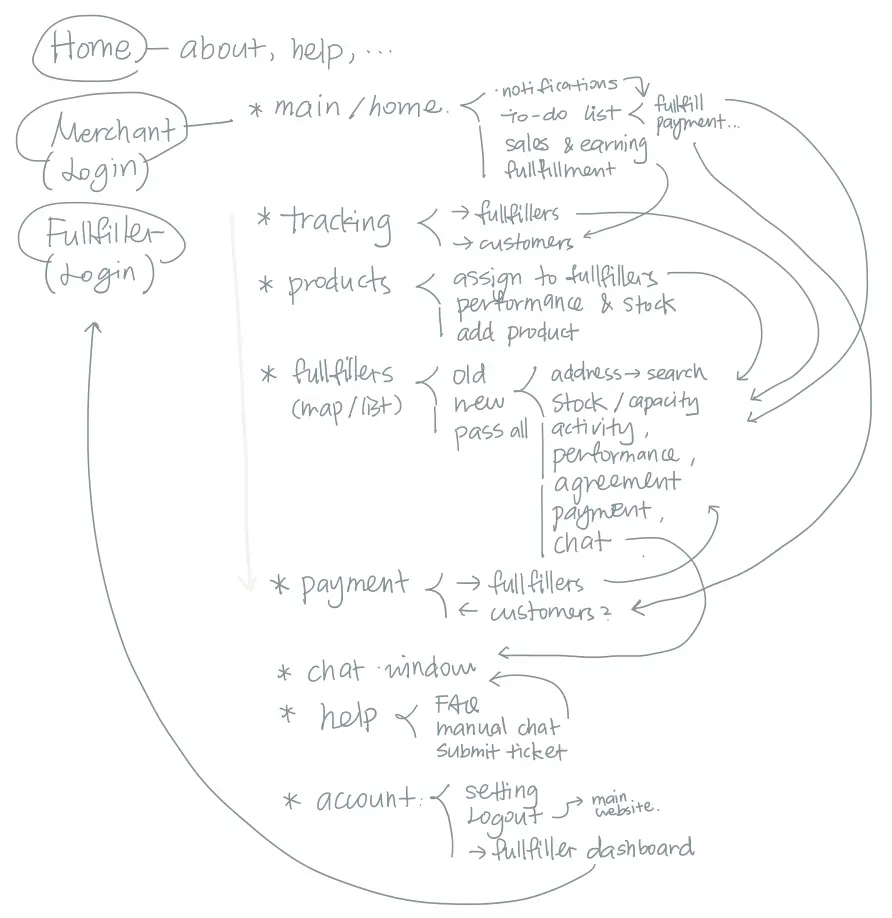 Home - about, help, ...
Merchant
(Login)
Fullfiller
(Login)
* main/home.
· notifications
to-do list
sales & earning
fullfillment
fulfill
payment...
* tracking
→ fullfillers
→ customers
* products
assign to fullfillers
performance & stock
add product
* fullfillers
(map/list)
old
new
pass all
address → search
stock / capacity
activity,
performance,
agreement
payment,
chat
* payment
→ fullfillers
← customers?
* chat window
* help
FAQ
manual chat
submit ticket
* account:
setting
Logout
main
website.
→ fullfiller dashboard